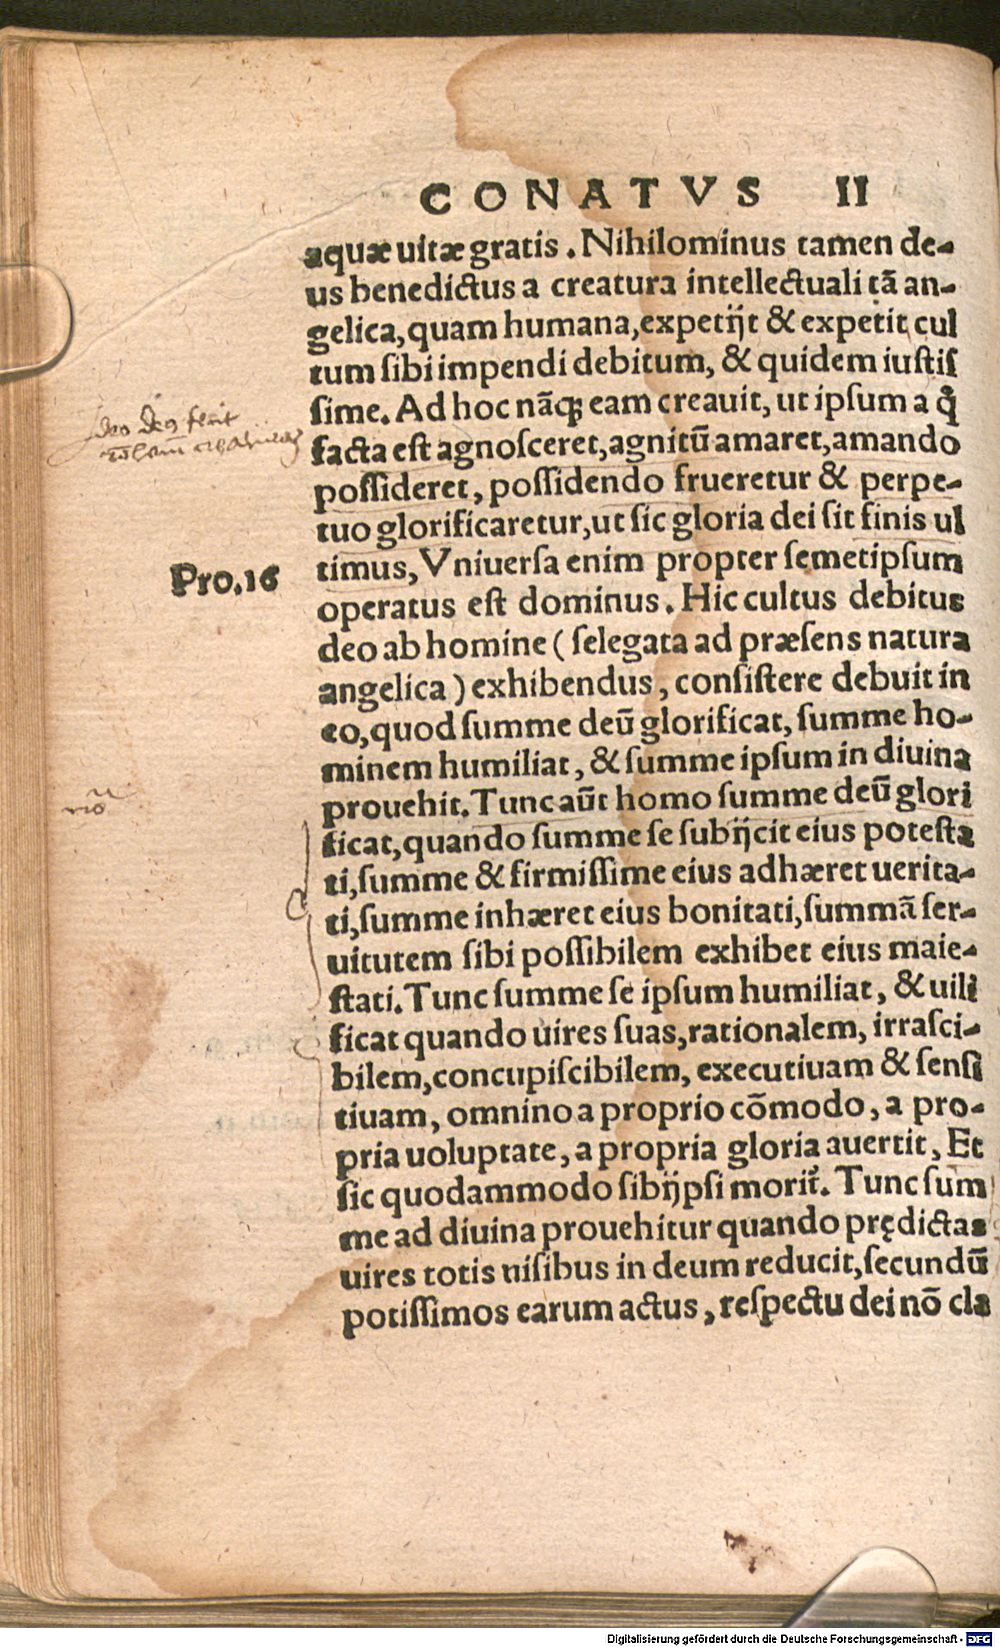 CONATVS II
aquæ uitæ gratis. Nihilominus tamen de-
us benedictus a creatura intellectuali tā an-
gelica, quam humana, expetijt & expetit cul
tum sibi impendi debitum, & quidem iustis
sime. Ad hoc nāq; eam creauit, ut ipsum a q̊
facta est agnosceret, agnitū amaret, amando
possideret, possidendo frueretur & perpe-
tuo glorificaretur, ut sic gloria dei sit finis ul
Pro. 16
timus, Vniuersa enim propter semetipsum
operatus est dominus. Hic cultus debitus
deo ab homine (selegata ad præsens natura
angelica) exhibendus, consistere debuit in
eo, quod summe deū glorificat, summe ho-
minem humiliat, & summe ipsum in diuina
prouehit. Tunc aūt homo summe deū glori
ficat, quando summe se subijcit eius potesta
ti, summe & firmissime eius adhæret uerita-
ti, summe inhæret eius bonitati, summā ser-
uitutem sibi possibilem exhibet eius maie-
stati. Tunc summe se ipsum humiliat, & uili
ficat quando uires suas, rationalem, irrasci-
bilem, concupiscibilem, executiuam & sensi
tiuam, omnino a proprio cōmodo, a pro-
pria uoluptate, a propria gloria auertit, Et
sic quodammodo sibijpsi morit᷑. Tunc sum
me ad diuina prouehitur quando prędictas
uires totis uisibus in deum reducit, secundū
potissimos earum actus, respectu dei nō cla
Digitalisierung gefördert durch die Deutsche Forschungsgemeinschaft - DFG